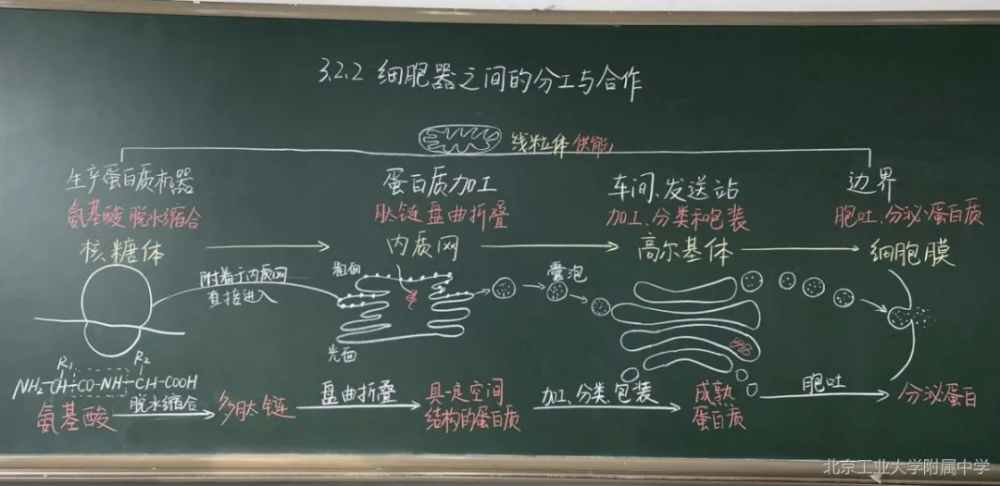 3.2.2 细胞器之间的分工与合作
线粒体 供能
生产蛋白质机器
蛋白质加工
车间、发送站
边界
氨基酸 脱水缩合
肽链 盘曲折叠
加工、分类和包装
胞吐、分泌蛋白质
核糖体
内质网
高尔基体
细胞膜
附着于内质网
直接进入
粗面
囊泡
光面
R₁
R₂
NH₂-CH-CO-NH-CH-COOH
氨基酸
脱水缩合
多肽链
盘曲折叠
具一定空间
结构的蛋白质
加工、分类、包装
成熟
蛋白质
胞吐
分泌蛋白
北京工业大学附属中学